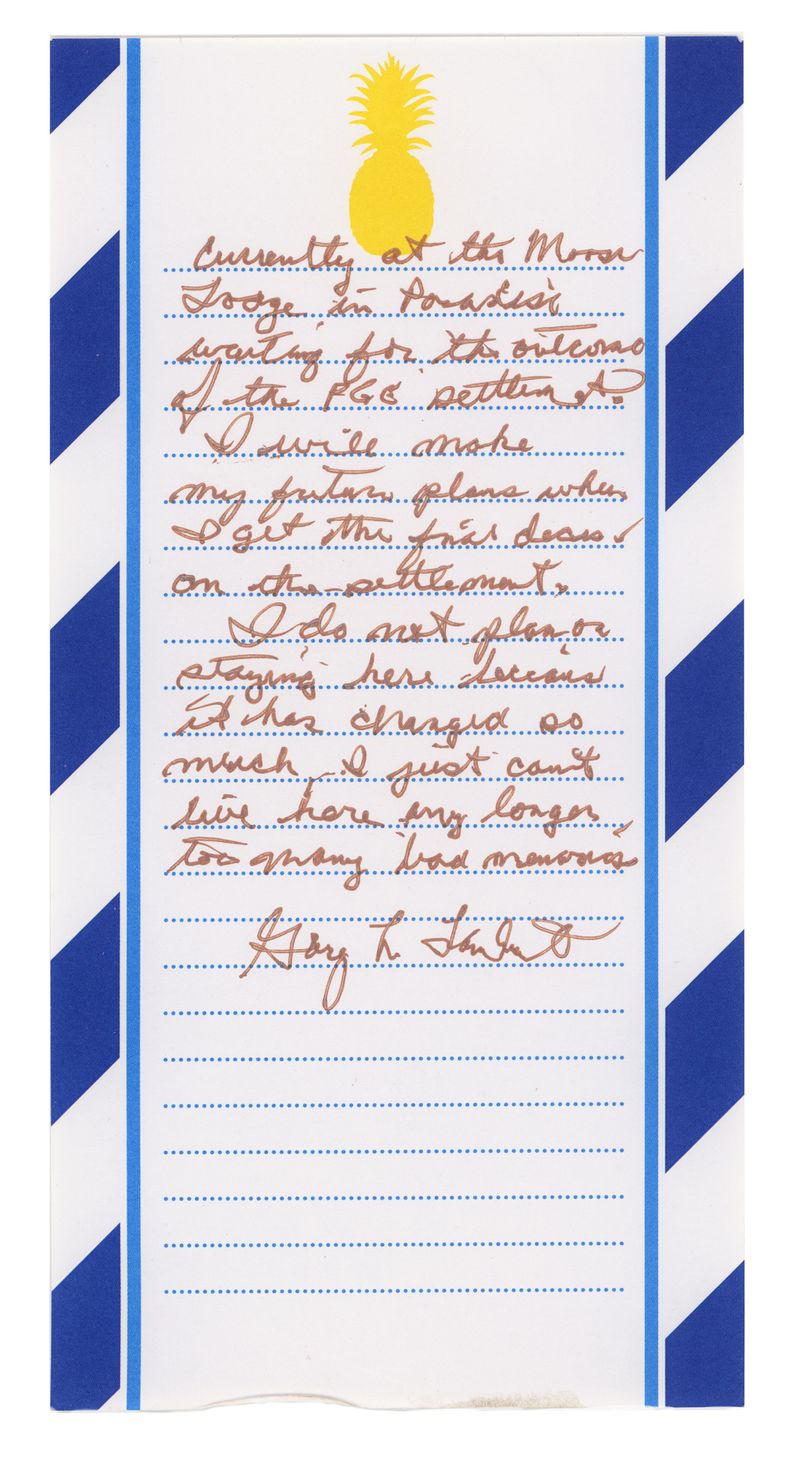 Currently at the Moose
Lodge in Paradise
waiting for the outcome
of the PGE settlement.
I will make
my future plans when
I get the final decis
on the settlement.
I do not plan on
staying here because
it has changed so
much I just can't
live here any longer
too many bad memories
Gary L.